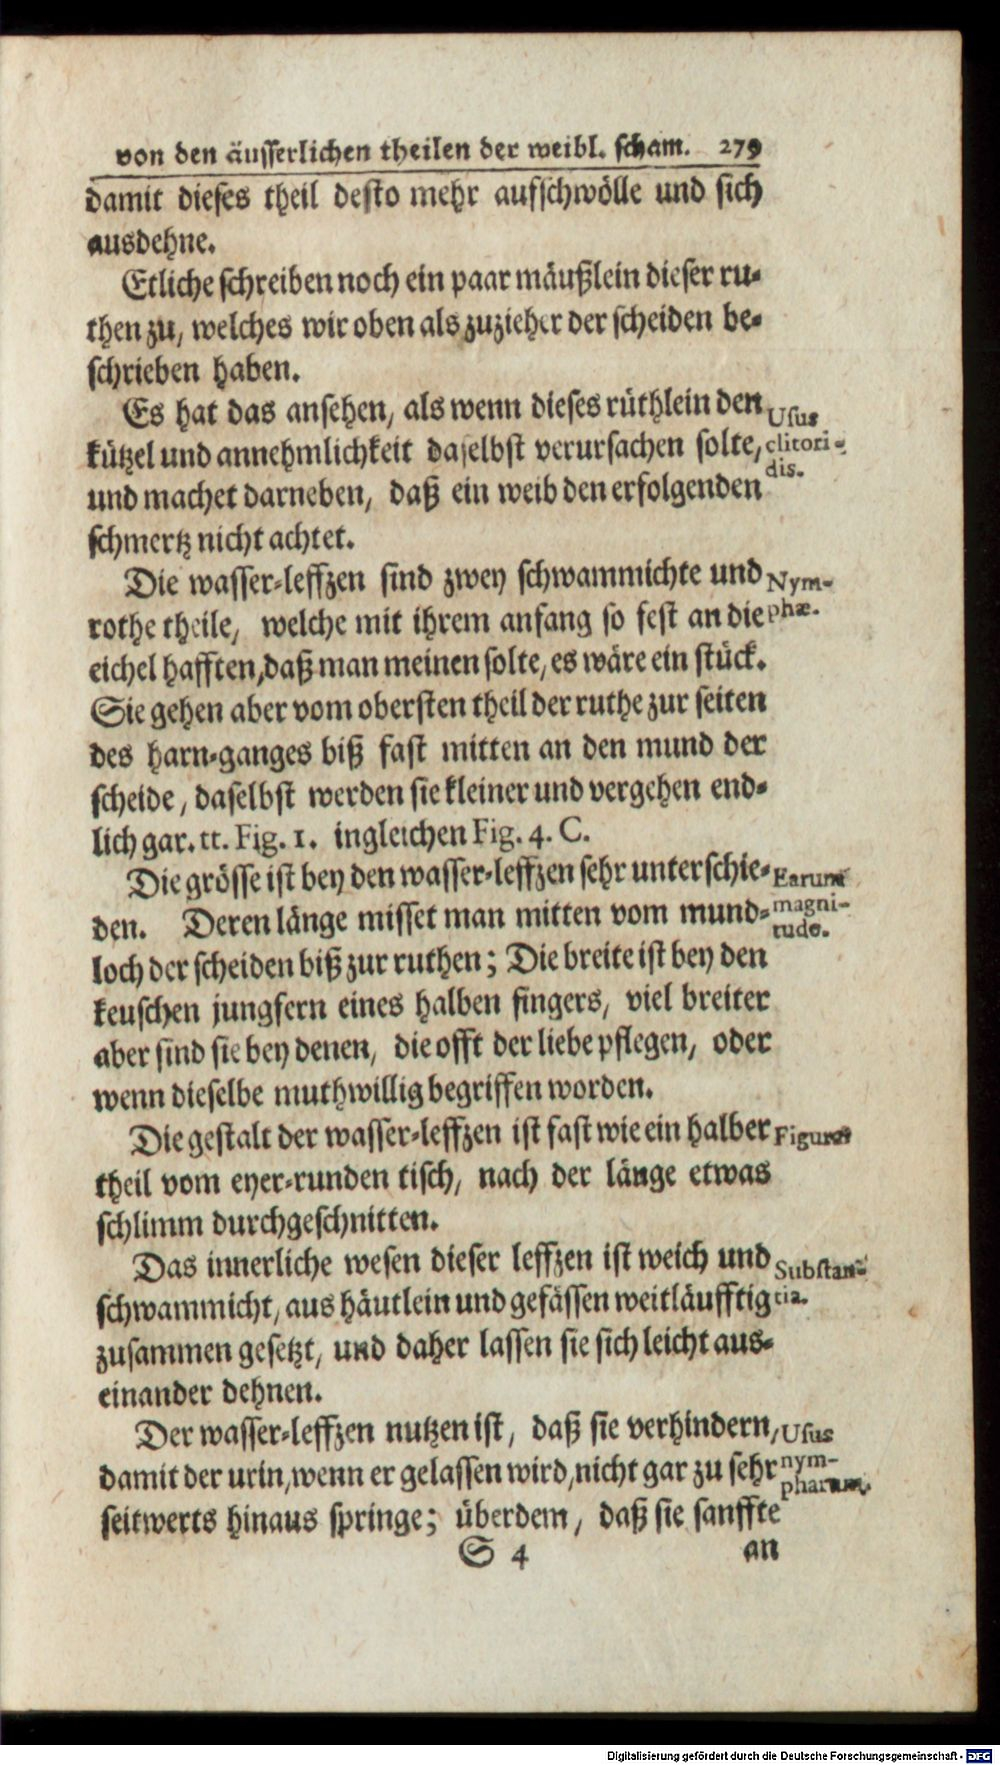 von den äusserlichen theilen der weibl. scham. 279
damit dieses theil desto mehr aufschwölle und sich
ausdehne.
Etliche schreiben noch ein paar mäußlein dieser ru-
then zu, welches wir oben als zuzieher der scheiden be-
schrieben haben.
Es hat das ansehen, als wenn dieses rüthlein den
Usus
kützel und annehmlichkeit daselbst verursachen solte,
clitori-
dis.
und machet darneben, daß ein weib den erfolgenden
schmertz nicht achtet.
Die wasser-leffzen sind zwey schwammichte und
Nym-
rothe theile, welche mit ihrem anfang so fest an die
phæ.
eichel hafften, daß man meinen solte, es wäre ein stück.
Sie gehen aber vom obersten theil der ruthe zur seiten
des harn-ganges biß fast mitten an den mund der
scheide, daselbst werden sie kleiner und vergehen end-
lich gar. tt. Fig. 1. ingleichen Fig. 4. C.
Die grösse ist bey den wasser-leffzen sehr unterschie-
Earum
den. Deren länge misset man mitten vom mund-
magni-
tudo.
loch der scheiden biß zur ruthen; Die breite ist bey den
keuschen jungfern eines halben fingers, viel breiter
aber sind sie bey denen, die offt der liebe pflegen, oder
wenn dieselbe muthwillig begriffen worden.
Die gestalt der wasser-leffzen ist fast wie ein halber
Figura
theil vom eyer-runden tisch, nach der länge etwas
schlimm durchgeschnitten.
Das innerliche wesen dieser leffzen ist weich und
Substan-
schwammicht, aus häutlein und gefässen weitläufftig
tia.
zusammen gesetzt, und daher lassen sie sich leicht aus-
einander dehnen.
Der wasser-leffzen nutzen ist, daß sie verhindern,
Usus
damit der urin, wenn er gelassen wird, nicht gar zu sehr
nym-
pharum.
seitwerts hinaus springe; überdem, daß sie sanffte
S 4
an
Digitalisierung gefördert durch die Deutsche Forschungsgemeinschaft - DFG